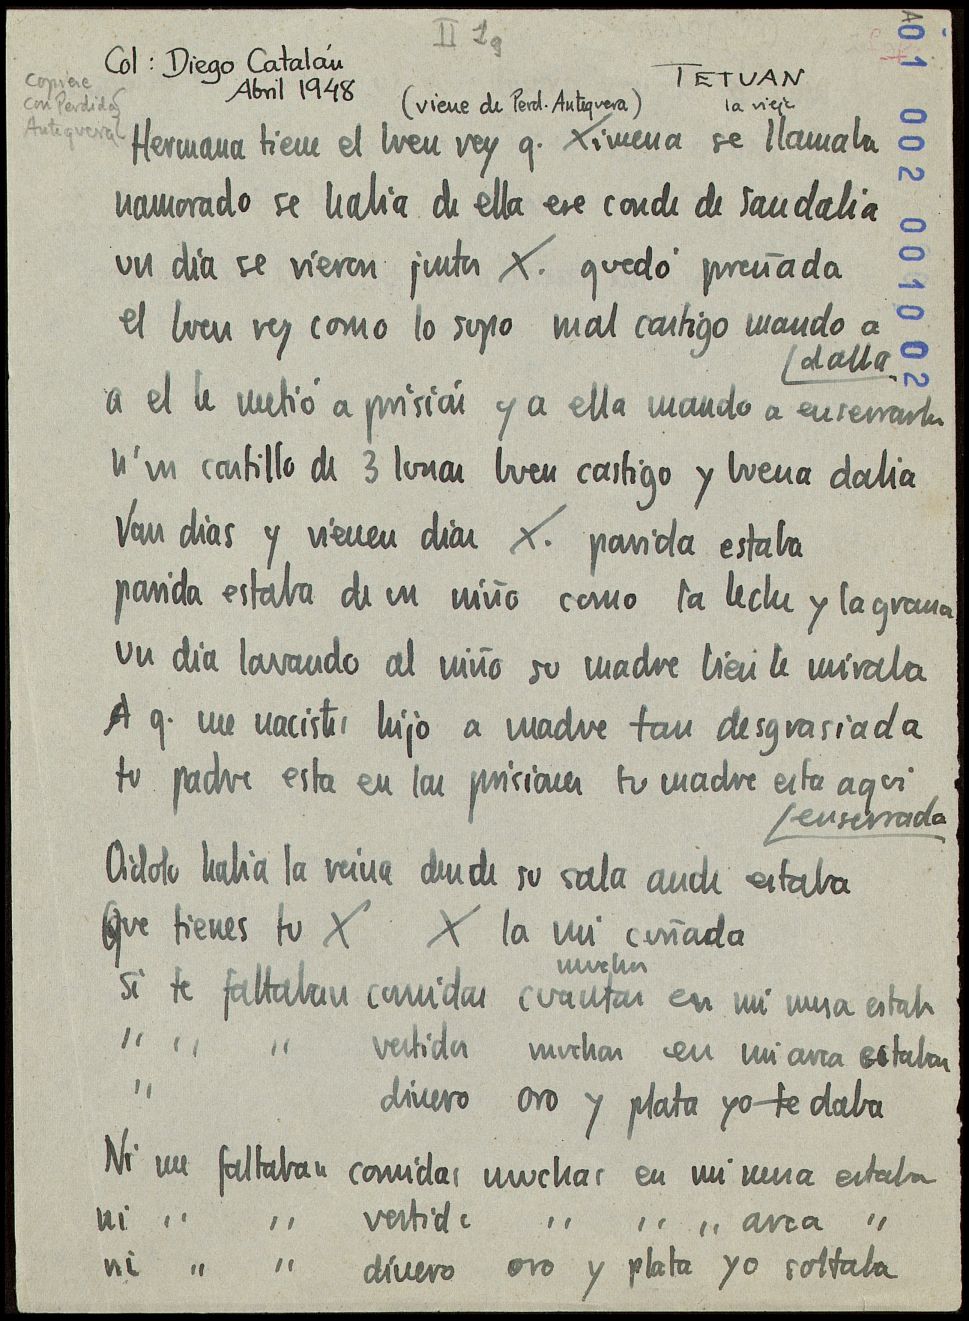 II 1g
Col: Diego Catalán
Abril 1948
TETUAN
la vieja
(viene de Perd. Antequera)
copiese
con Perdida
Antequera
01 002 0010 02
Hermana tiene el buen rey q. Ximena se llamaba
namorado se habia de ella ese conde de Sandalia
un dia se vieron juntos X. quedó preñada
el buen rey como lo supo mal castigo mando a
[dalla
a el le metió a prisión y a ella mando a enserrarla
n'un castillo de 3 lonas buen castigo y buena dalia
Van dias y vienen dias X. parida estaba
parida estaba de un niño como la leche y la grana
un dia lavando al niño su madre bien le miraba
A q. me nacistes hijo a madre tan desgrasiada
tu padre esta en las prisiones tu madre esta aqui
[enserrada
Oidolo habia la reina dende su sala ande estaba
Que tienes tu X X la mi cuñada
muchas
si te faltaban comidas cuantas en mi mesa estab
" " " vestidos muchos en mi arca estaban
" dinero oro y plata yo te daba
Ni me faltaban comidas muchas en mi mesa estaba
ni " " vestido " " " arca "
ni " " dinero oro y plata yo soltaba